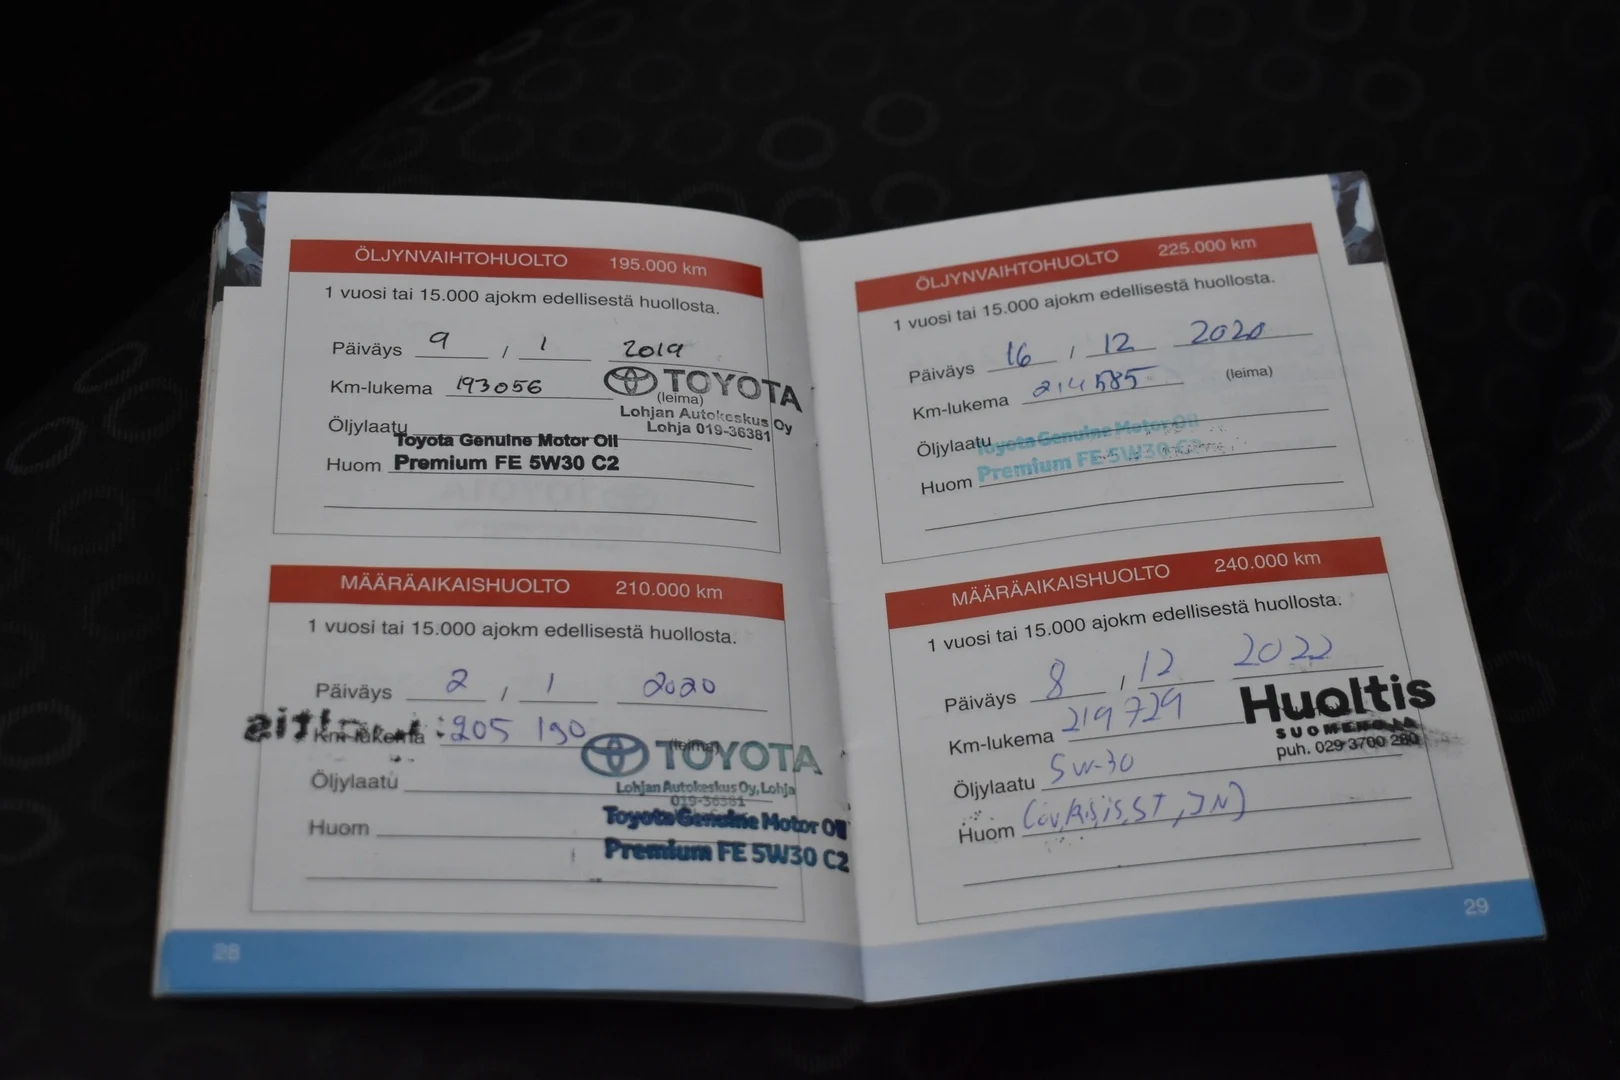 ÖLJYNVAIHTOHUOLTO 195.000 km
1 vuosi tai 15.000 ajokm edellisestä huollosta.
Päiväys 9 / 1 2019
Km-lukema 193056
TOYOTA
(leima)
Lohjan Autokeskus Oy
Lohja 019-36381
Öljylaatu
Toyota Genuine Motor Oil
Huom Premium FE 5W30 C2
MÄÄRÄAIKAISHUOLTO 210.000 km
1 vuosi tai 15.000 ajokm edellisestä huollosta.
Päiväys 2 / 1 2020
Km-lukema : 205 190
(leima)
TOYOTA
Lohjan Autokeskus Oy, Lohja
019-36381
Öljylaatu
Toyota Genuine Motor Oil
Huom
Premium FE 5W30 C2
28
ÖLJYNVAIHTOHUOLTO 225.000 km
1 vuosi tai 15.000 ajokm edellisestä huollosta.
Päiväys 16 / 12 2020
Km-lukema 214585 (leima)
Öljylaatu
Toyota Genuine Motor Oil
Huom Premium FE 5W30 C2
MÄÄRÄAIKAISHUOLTO 240.000 km
1 vuosi tai 15.000 ajokm edellisestä huollosta.
Päiväys 8 / 12 2022
Km-lukema 219729
Huoltis
puh. 029 3700 280
Öljylaatu 5W-30
Huom
29